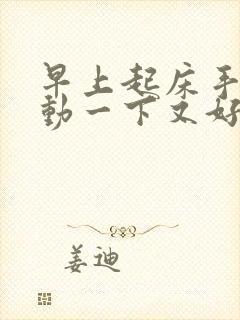 早上起床手
動一下又好
姜迪